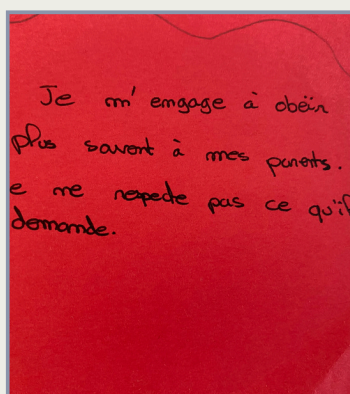 Je m'engage à obéïr
plus souvent à mes parents.
e ne respecte pas ce qu'il
demande.